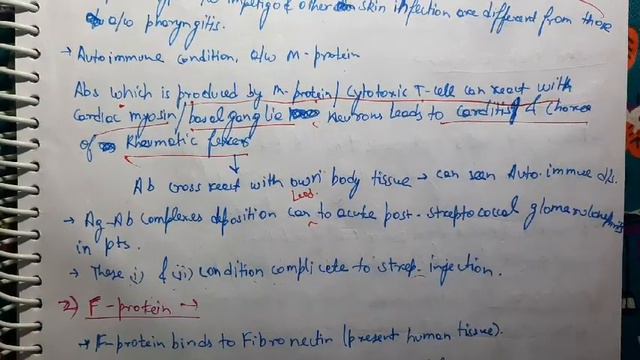 a/w impetigo & other skin infection are different from those
a/w pharyngitis.
→ Autoimmune condition, a/w M-protein
Abs which is produced by M-protein/Cytotoxic T-cell can react with
Cardiac myosin/basal ganglia neurons leads to carditis & Chorea
of Rheumatic fever
Ab cross react with own body tissue → can seen Auto.immune ds.
→ Ag-Ab complexes deposition can lead to acute post-streptococcal glomerulonephritis
in pts.
→ These i) & ii) condition complicate to strep. injection.
2) F-protein →
→ F-protein binds to Fibronectin (present human tissue).